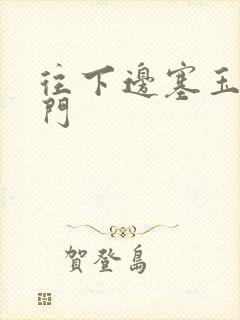 往下邊塞玉
門
賀登島